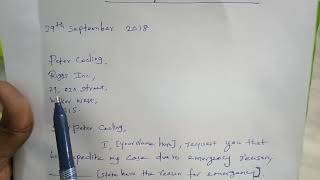 29th September 2018
Peter Cooling,
Riggs Inc,
21, azn street,
West,
15.
Peter Cooling,
I, [your name here], request you that
expedite my case due to emergency reason,
[state here the reason for emergency].